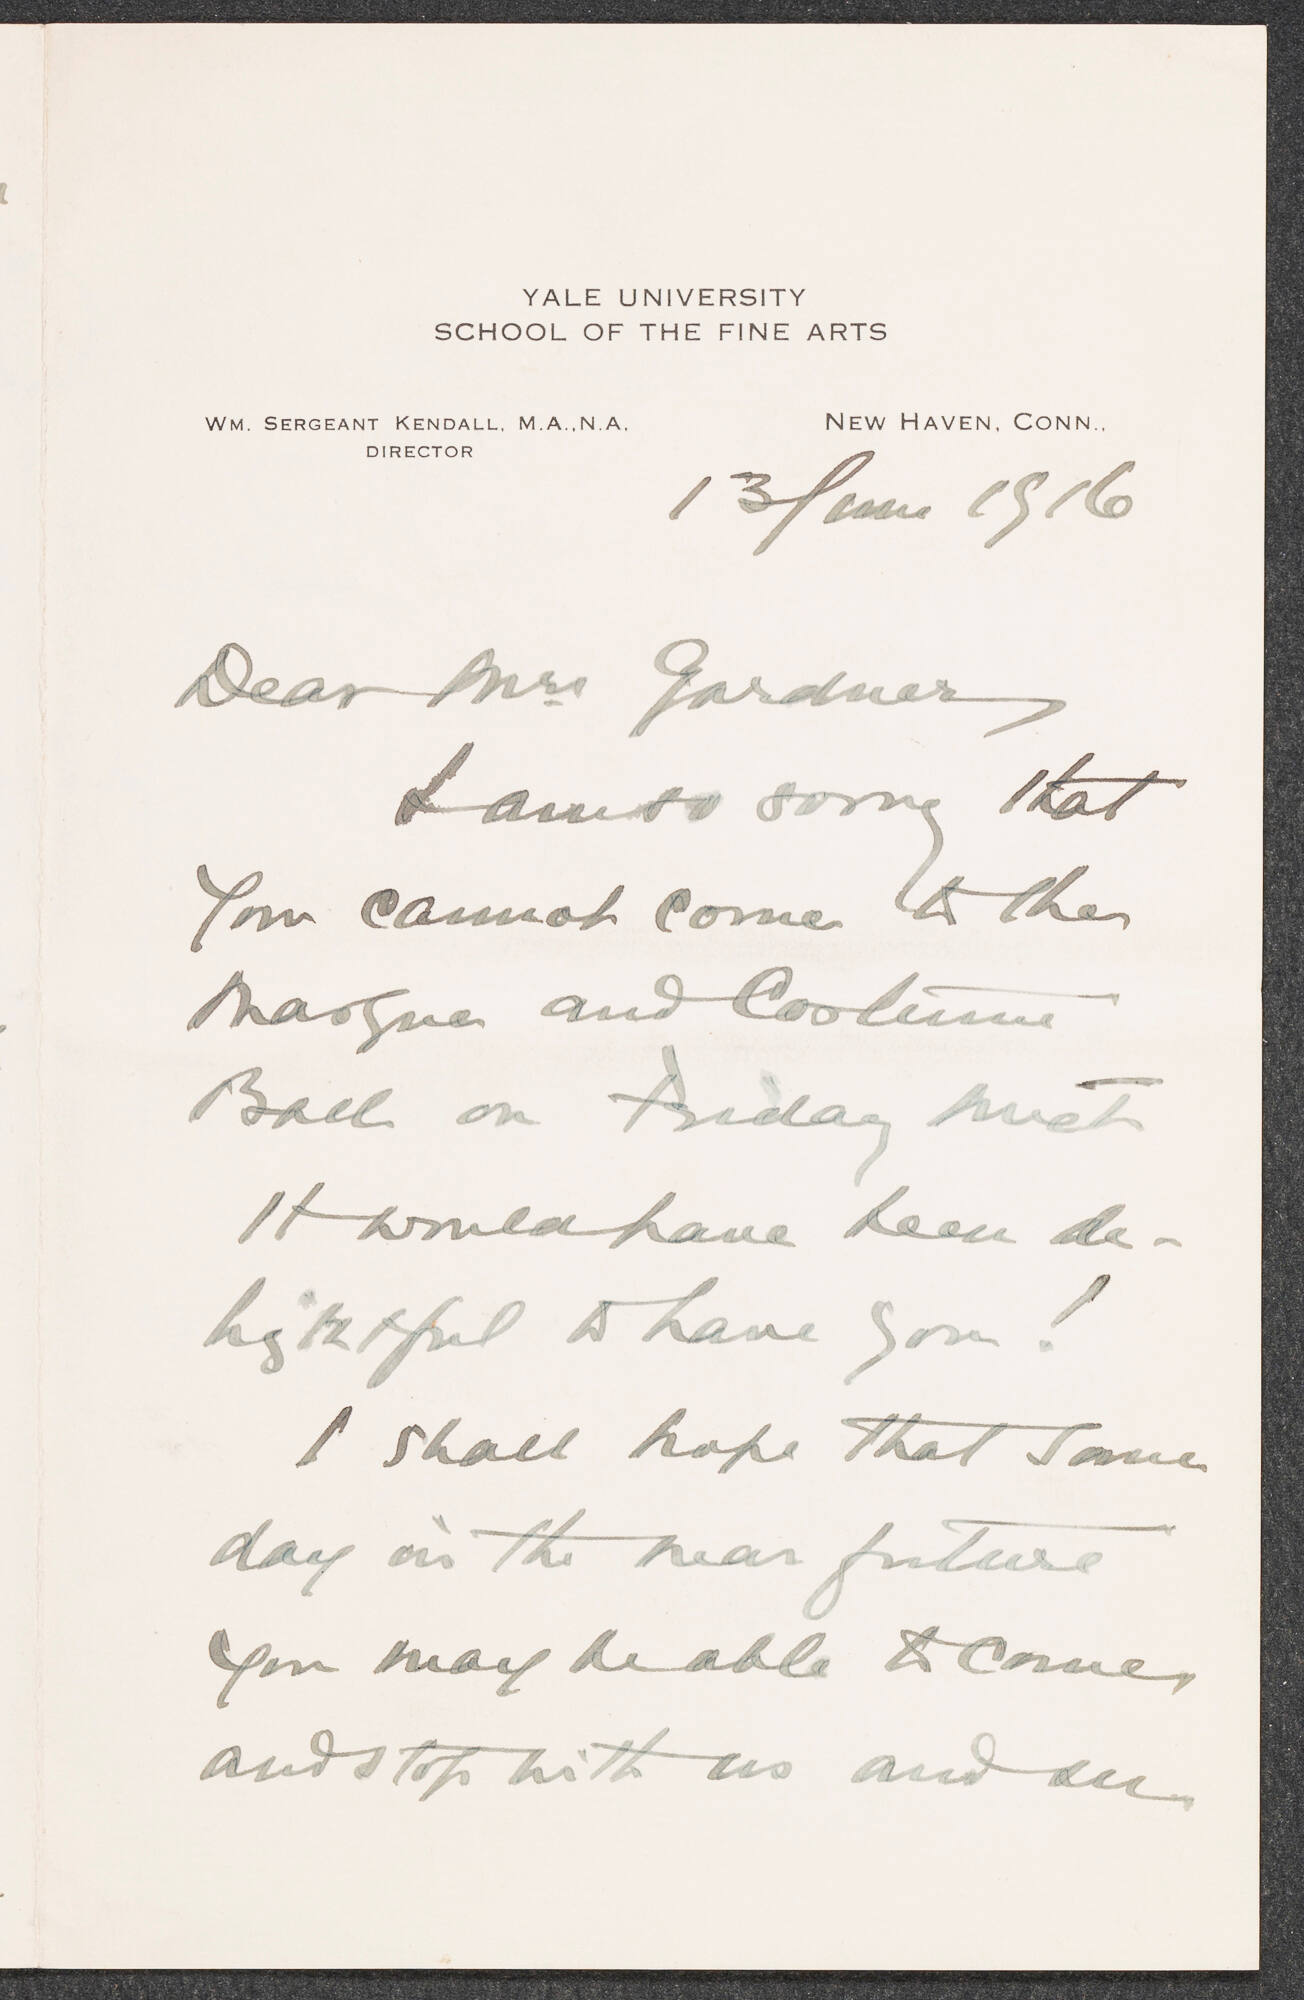 YALE UNIVERSITY
SCHOOL OF THE FINE ARTS
WM. SERGEANT KENDALL, M.A., N.A.
DIRECTOR
NEW HAVEN, CONN.,
13 June 1916
Dear Mrs Gardner,
I am so sorry that
you cannot come to the
Masque and Costume
Ball on Friday next
It would have been de-
lightful to have you!
I shall hope that some
day in the near future
you may be able to come,
and stop with us and see